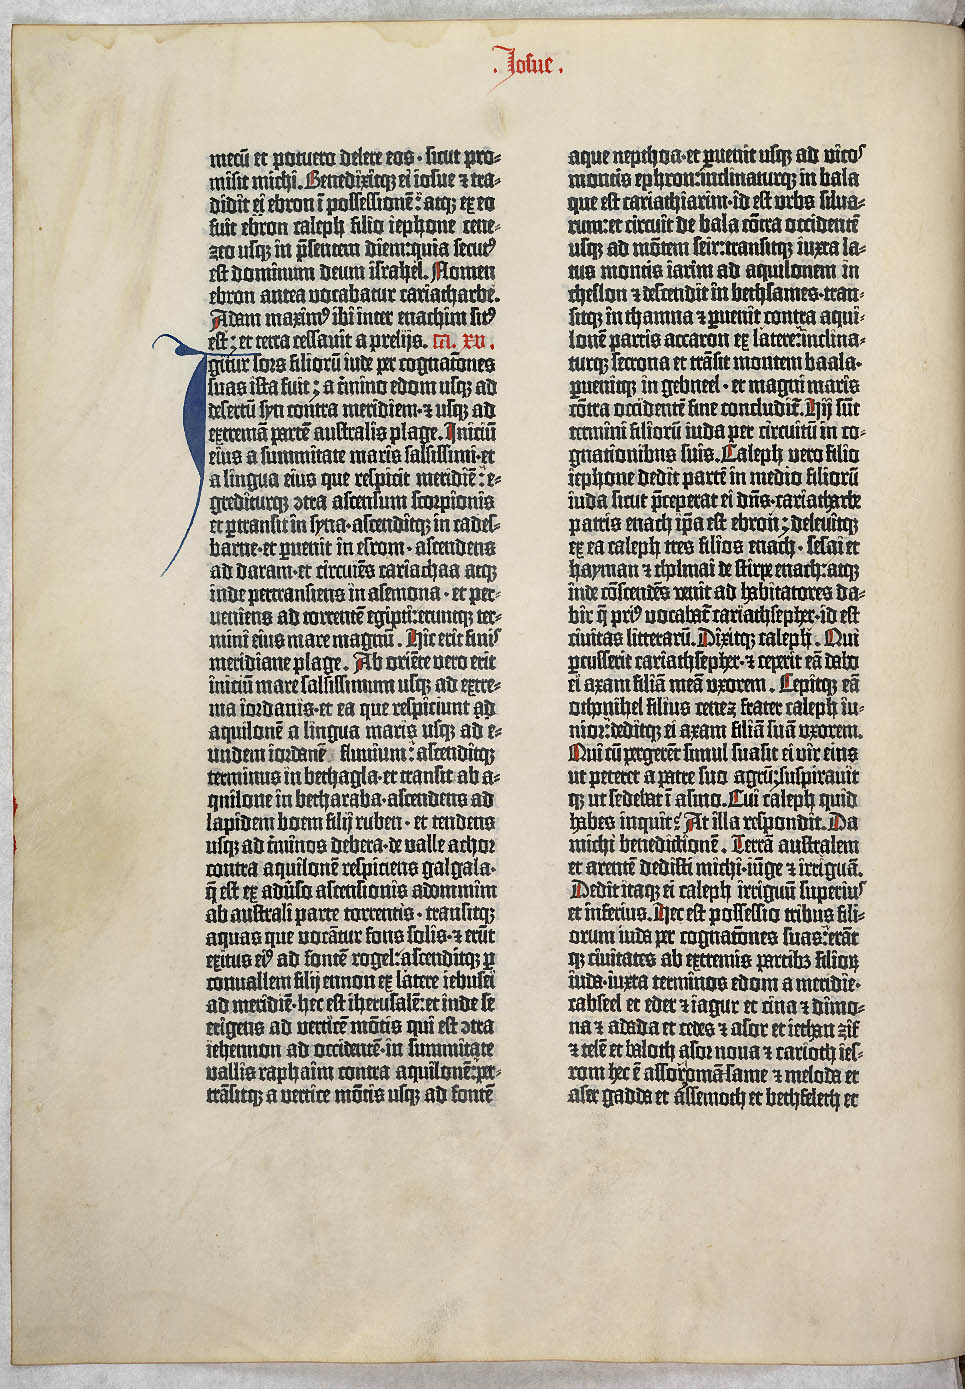 .Josue.
mecū et potuero delere eos · sicut pro-
misit michi. Benedixitqꝫ ei iosue ⁊ tra-
didit ei ebron ī possessionē: atqꝫ ex eo
fuit ebron caleph filio iephone cene-
zeo usqꝫ in p̄sentem diem: quia secutꝰ
est dominum deum israhel. Nomen
ebron antea vocabatur cariatharbe.
Adam maximꝰ ibi inter enachim sitꝰ
est; et terra cessavit a prelijs. ca. xv.
Igitur sors filioru iude per cognatōnes
suas ista fuit; a t̄mino edom usqꝫ ad
desertū syn contra meridiem · ⁊ usqꝫ ad
extremā partē australis plage. Iniciū
eius a summitate maris salsissimi · et
a lingua eius que respicit meridiē: e-
grediturqꝫ ꝯtra ascensum scorpionis
et ꝑtransit in syna · ascenditqꝫ in cades-
barne · et ꝑuenit in esrom · ascendens
ad daram · et circuiēs cariachaa atqꝫ
inde pertransiens in asemona · et per-
veniens ad torrentē egipti: eruntqꝫ ter-
mini eius mare magnū. Hic erit finis
meridiane plage. Ab oriēte vero erit
iniciū mare salsissimum usqꝫ ad extre-
ma iordanis · et ea que respiciunt ad
aquilonē a lingua maris usqꝫ ad e-
undem iordanē fluvium: ascenditqꝫ
terminus in bethagla · et transit ab a-
quilone in betharaba · ascendens ad
lapidem boem filij ruben · et tendens
usqꝫ ad t̄minos debera · de valle achor
contra aquilonē respiciens galgala ·
q̄ est ex adūso ascensionis adommim
ab australi parte torrentis · transitqꝫ
aquas que vocātur fons solis · ⁊ erūt
exitus eiꝰ ad fontē rogel: ascenditqꝫ ꝑ
convallem filij ennon ex latere iebusei
ad meridiē · hec est iherusalē: et inde se
erigens ad verticē mōtis qui est ꝯtra
iehennon ad occidentē · in summitate
vallis raphaim contra aquilonē: per-
trāsitqꝫ a vertice mōtis usqꝫ ad fontē
aque nepthoa · et ꝑuenit usqꝫ ad vicos
montis ephron: inclinaturqꝫ in bala
que est cariathiarim · id est urbs silua-
rum: et circuit de bala cōtra occidentē
usqꝫ ad mōtem seir: transitqꝫ iuxta la-
tus montis iarim ad aquilonem in
cheslon ⁊ descendit in bethsames · tran-
sitqꝫ in thamna ⁊ ꝑuenit contra aqui-
lonē partis accaron ex latere: inclina-
turqꝫ secrona et trāsit montem baala ·
ꝑuenitqꝫ in gebneel · et magni maris
cōtra occidentē fine concludit̄. Hij sūt
termini filiorū iuda per circuitū in co-
gnationibus suis. Caleph vero filio
iephone dedit partē in medio filiorū
iuda sicut p̄ceperat ei dn̄s · cariatharbe
patris enach ip̄a est ebron; delevitqꝫ
ex ea caleph tres filios enach · sesai et
hayman ⁊ tholmai de stirpe enach: atqꝫ
inde cōscendēs venit ad habitatores da-
bir q̄ priꝰ vocabat̄ cariathsepher · id est
civitas litterarū. Dixitqꝫ caleph. Qui
ꝑcusserit cariathsepher · ⁊ ceperit eā dabo
ei axam filiā meā uxorem. Cepitqꝫ eā
othonihel filius cenez frater caleph iu-
nior: deditqꝫ ei axam filiā suā uxorem.
Qui cū pergerēt simul suasit ei vir eius
ut peteret a patre suo agrū: suspiravit
qꝫ ut sedebat ī asino. Cui caleph quid
habes inquit: At illa respondit. Da
michi benedictionē. Terrā australem
et arentē dedisti michi · iūge ⁊ irriguā.
Dedit itaqꝫ ei caleph irriguū superius
et inferius. Hec est possessio tribus fili-
orum iuda per cognatōnes suas: erāt
qꝫ civitates ab extremis partibꝫ filioꝝ
iuda · iuxta terminos edom a meridie ·
cabseel et eder ⁊ iagur et cina ⁊ dimo-
na ⁊ adada et cedes ⁊ asor et iethan zif
⁊ telē et baloth asor nova ⁊ carioth ies-
rom hec ē assor · oman · same ⁊ meloda et
aser gadda et assemoth et bethfeleth et